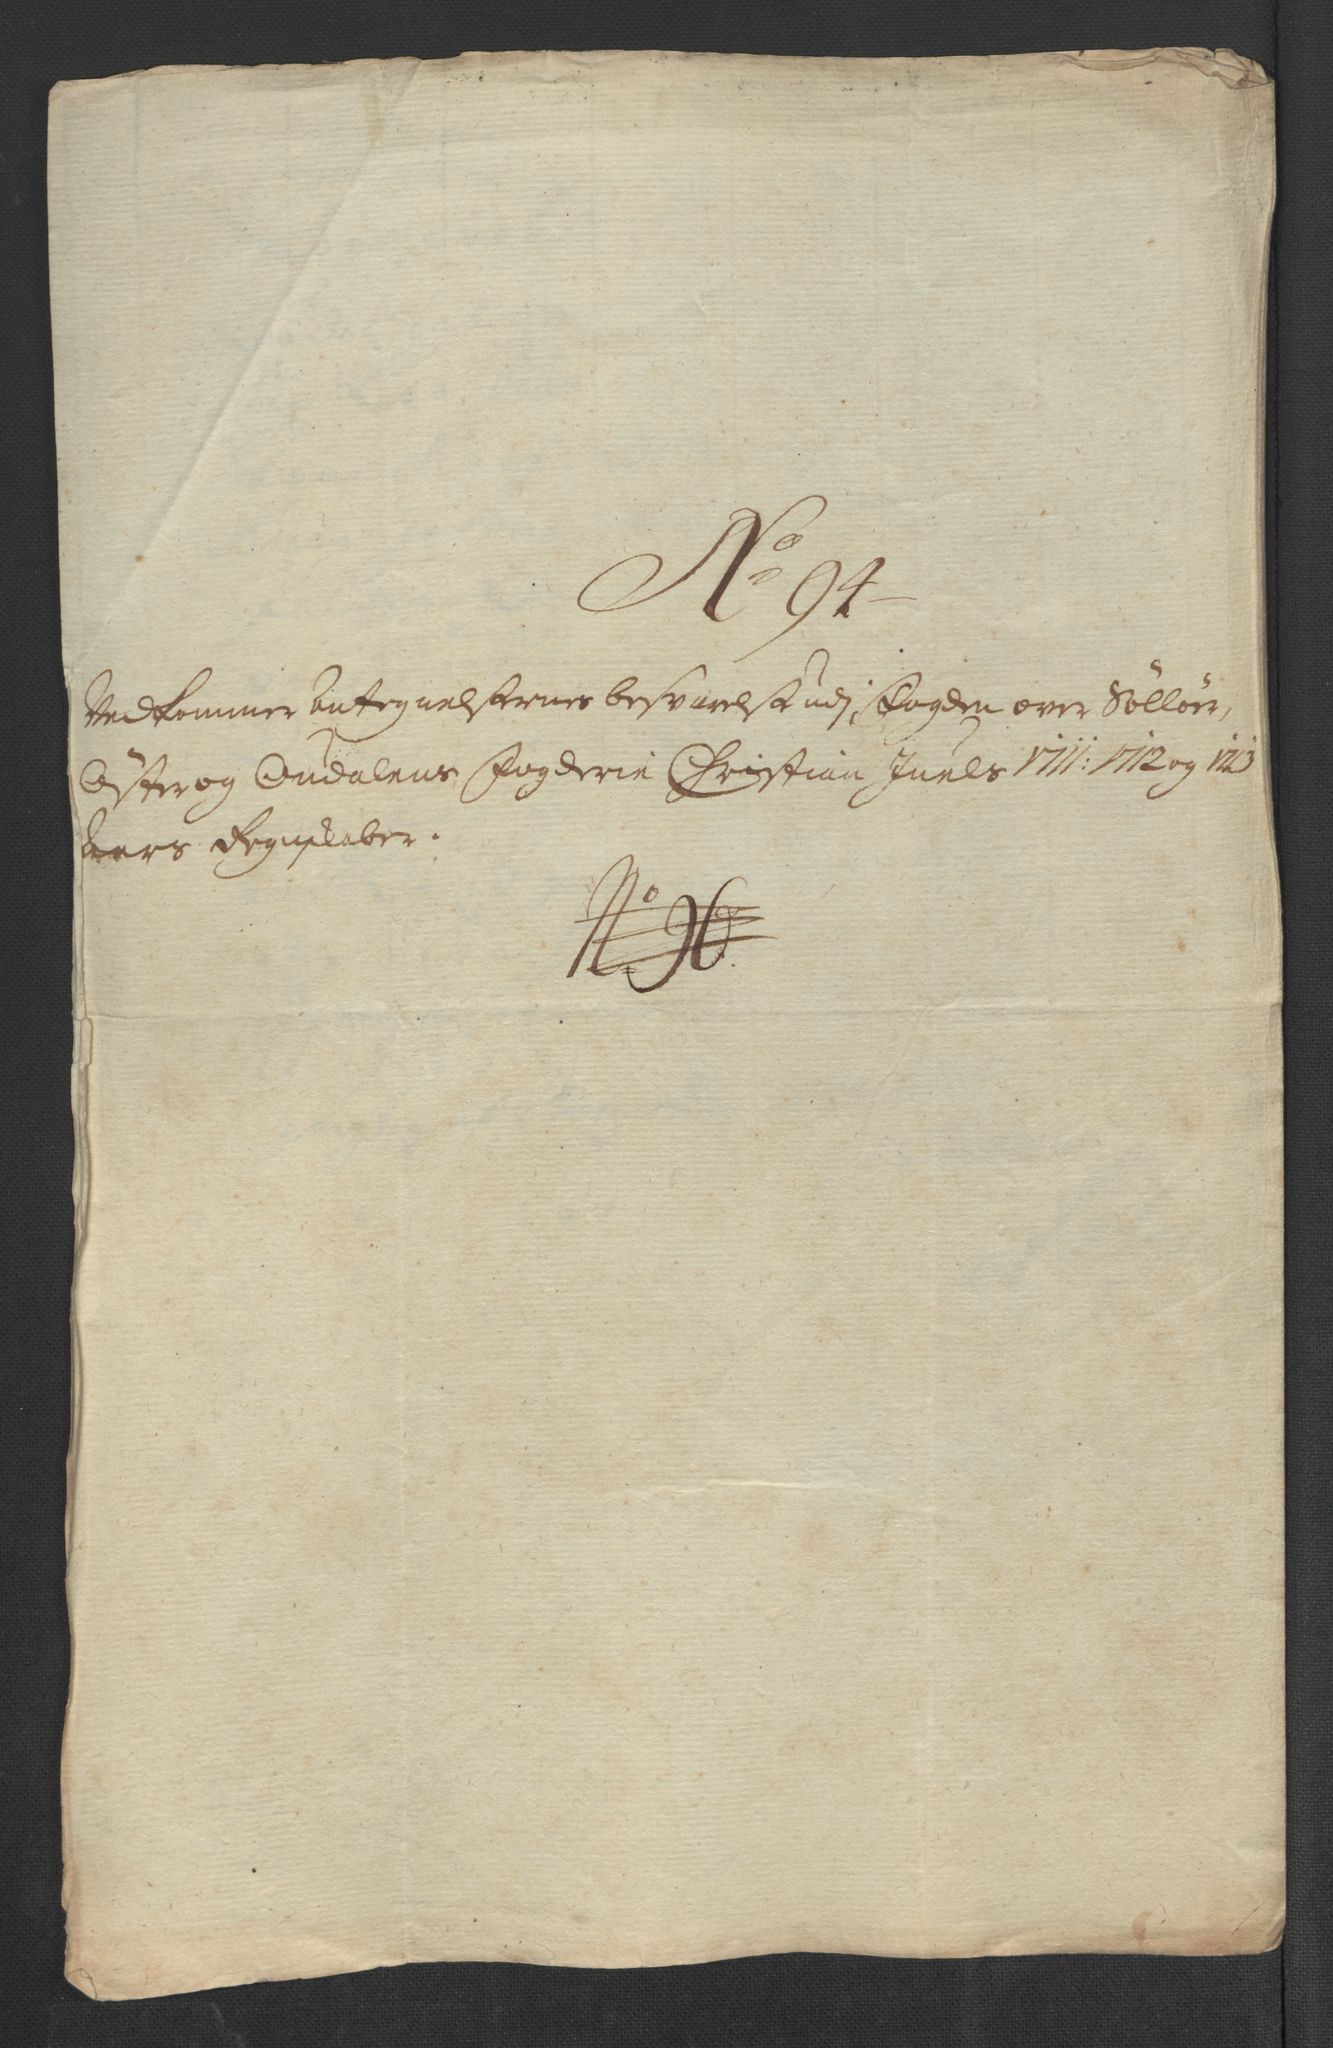 No 94
Vedkommer Antegnelsernes besvarelse udj Fogden over Sollöer,
Öster og Oudalens Fogderie Christian Juels 1711: 1712 og 1713
Aars Regnskaber.
No 96.